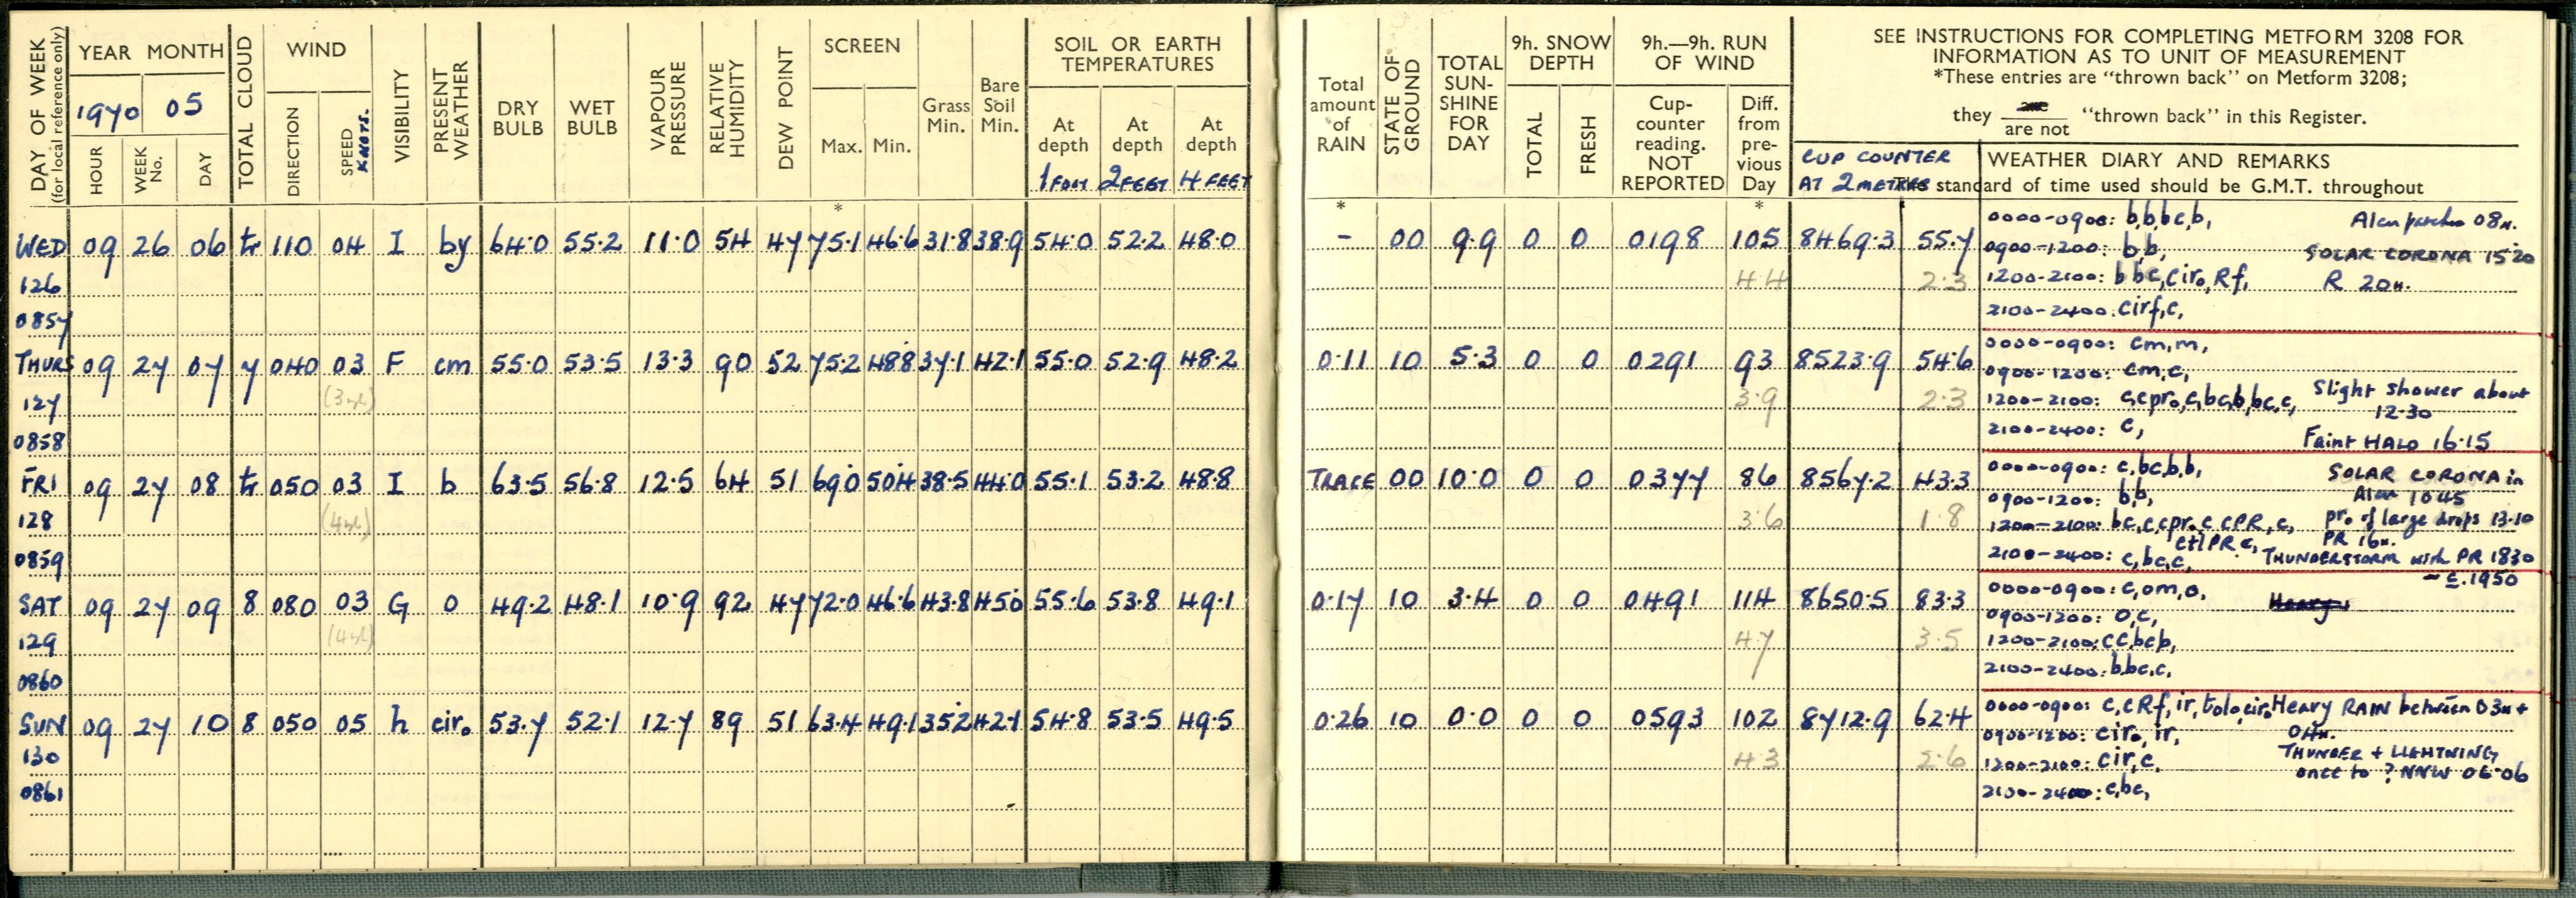 DAY OF WEEK
(for local reference only)
YEAR MONTH
1970 05
HOUR
WEEK No.
DAY
TOTAL CLOUD
WIND
DIRECTION
SPEED KNOTS.
VISIBILITY
PRESENT WEATHER
DRY BULB
WET BULB
VAPOUR PRESSURE
RELATIVE HUMIDITY
DEW POINT
SCREEN
Max. Min.
Grass Min.
Bare Soil Min.
SOIL OR EARTH TEMPERATURES
At depth 1 FOOT
At depth 2 FEET
At depth 4 FEET
Total amount of RAIN
STATE OF GROUND
TOTAL SUN-SHINE FOR DAY
9h. SNOW DEPTH
TOTAL
FRESH
9h.—9h. RUN OF WIND
Cup-counter reading. NOT REPORTED
Diff. from pre-vious Day
SEE INSTRUCTIONS FOR COMPLETING METFORM 3208 FOR
INFORMATION AS TO UNIT OF MEASUREMENT
*These entries are "thrown back" on Metform 3208;
they are / are not "thrown back" in this Register.
CUP COUNTER AT 2 METRES
WEATHER DIARY AND REMARKS
The standard of time used should be G.M.T. throughout
* * *
WED 09 26 06 tr 110 04 I by 64.0 55.2 11.0 54 47 75.1 46.6 31.8 38.9 54.0 52.2 48.0 - 00 9.9 0 0 0198 105 8469.3 55.7
126 44 2.3
0857
0000-0900: b,b,bc,b,
08H.
0900-1200: b,b, SOLAR CORONA 1520
1200-2100: b bc,cir₀,Rf, R 20H.
2100-2400: cirf,c,
THURS 09 27 07 7 040 03 F cm 55.0 53.5 13.3 90 52 75.2 48.8 37.1 42.1 55.0 52.9 48.2 0.11 10 5.3 0 0 0291 93 8523.9 54.6
127 3.9 2.3
0858
0000-0900: cm,m,
0900-1200: cm,c,
1200-2100: c,cpr₀,c,bc,b,bc,c, Slight shower about 12.30
2100-2400: c, Faint HALO 16.15
FRI 09 27 08 tr 050 03 I b 63.5 56.8 12.5 64 51 69.0 50.4 38.5 44.0 55.1 53.2 48.8 TRACE 00 10.0 0 0 0377 86 8567.2 43.3
128 3.6 1.8
0859
0000-0900: c,bc,b,b, SOLAR CORONA in
0900-1200: b,b, Alcu 1045
1200-2100: bc,c,cpr₀c,cPR,c, pr₀ of large drops 13.10
ctlPR c, PR 16H.
2100-2400: c,bc,c, THUNDERSTORM with PR 1830
- c.1950
SAT 09 27 09 8 080 03 G o 49.2 48.1 10.9 92 47 72.0 46.6 43.8 45.0 55.6 53.8 49.1 0.17 10 3.4 0 0 0491 114 8650.5 83.3
129 47 3.5
0860
0000-0900: c,om,o, Heavy
0900-1200: o,c,
1200-2100: cc,bc,b,
2100-2400: b,bc,c,
SUN 09 27 10 8 050 05 h cir₀ 53.7 52.1 12.7 89 51 63.4 49.1 35.2 42.1 54.8 53.5 49.5 0.26 10 0.0 0 0 0593 102 8712.9 62.4
130 43 2.6
0861
0000-0900: c,cRf,ir, Heavy RAIN between 03H +
0900-1200: cir₀,ir, 04H.
1200-2100: cir,c, THUNDER + LIGHTNING
once to ? NNW 06-06
2100-2400: c,bc,